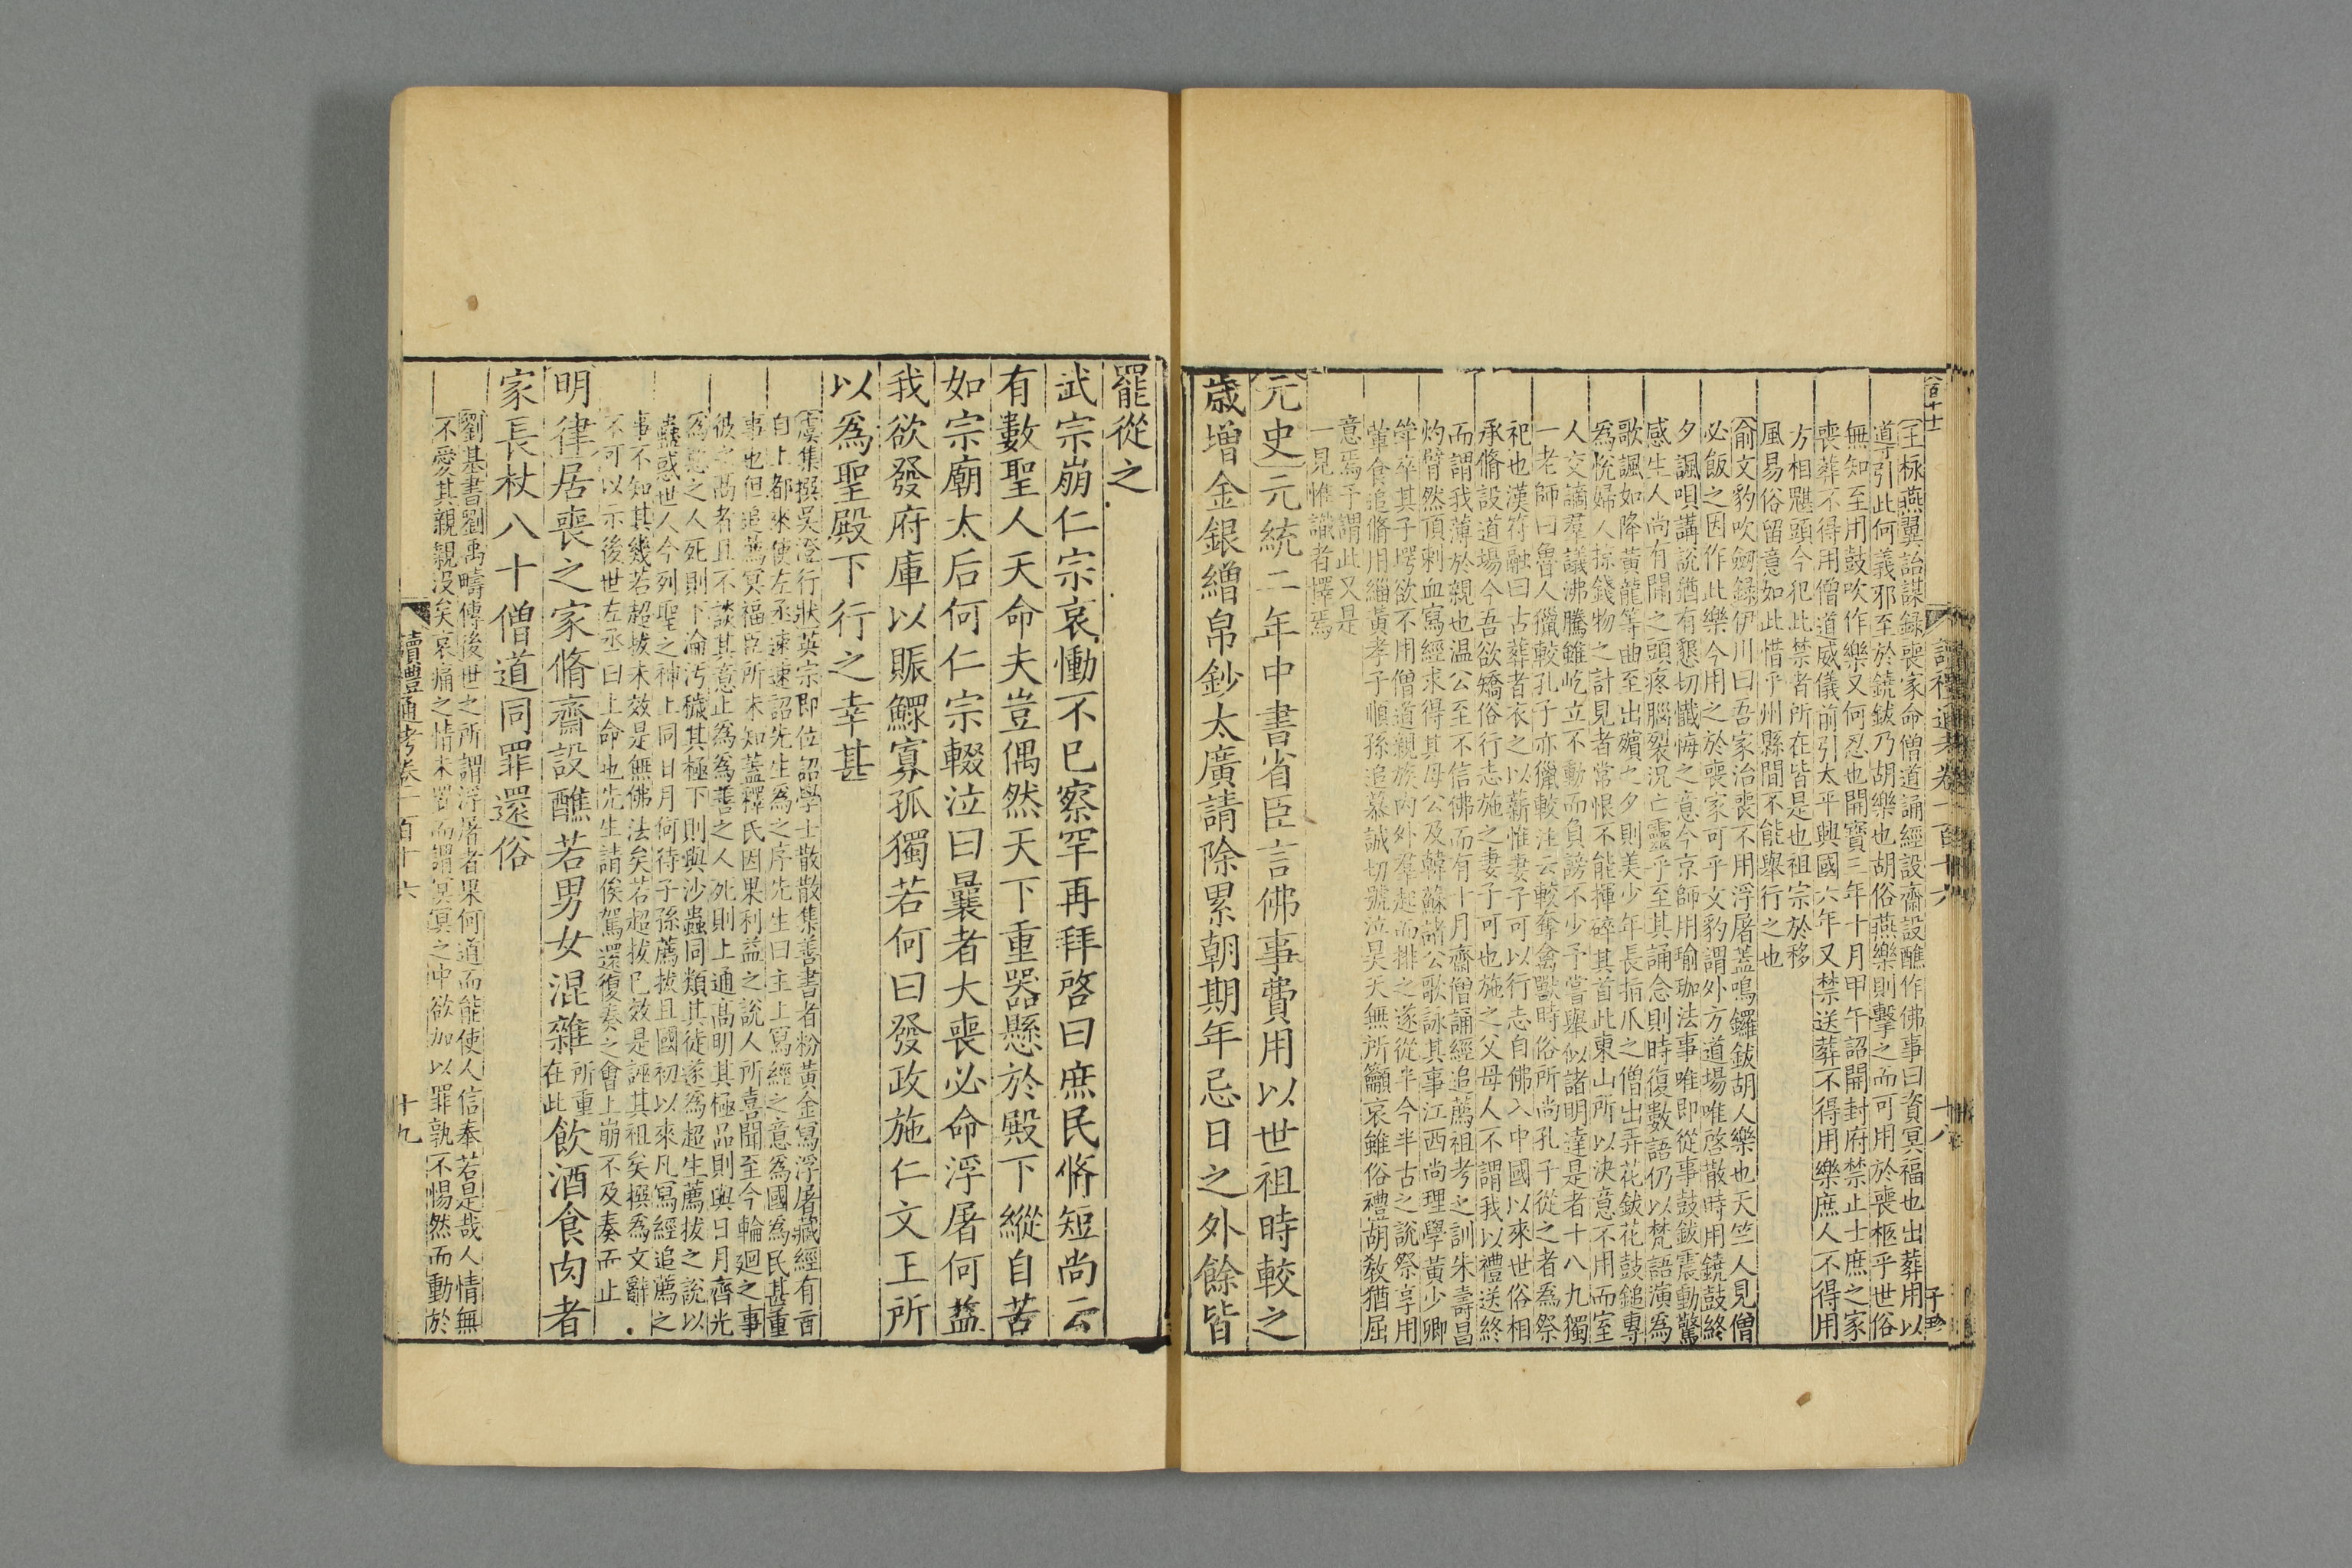 讀禮通考卷一百十六
十八
王栐燕翼詒謀録喪家命僧道誦經設齋設醮作佛事曰資冥福也出葬用以
導引此何義邪至於鐃鈸乃胡樂也胡俗燕樂則擊之而可用於喪柩乎世俗
無知至用鼓吹作樂又何忍也開寶三年十月甲午詔開封府禁止士庶之家
喪葬不得用僧道威儀前引太平興國六年又禁送葬不得用樂庶人不得用
方相魌頭今犯此禁者所在皆是也祖宗於移
風易俗留意如此惜乎州縣間不能舉行之也
俞文豹吹劔録伊川曰吾家治喪不用浮屠蓋鳴鑼鈸胡人樂也天竺人見僧
必飯之因作此樂今用之於喪家可乎文豹謂外方道場唯啓散時用鐃鼓終
夕諷唄講說猶有懇切懺悔之意今京師用瑜珈法事唯即從事鼓鈸震動驚
感生人尚有聞之頭疼腦裂況亡靈乎至其誦念則時復數語仍以梵語演爲
歌諷如降黃龍等曲至出殯之夕則美少年長指爪之僧出弄花鈸花鼓鎚專
爲悅婦人掠錢物之計見者常恨不能揮碎其首此東山所以決意不用而室
人交謫羣議沸騰雖屹立不動而負謗不少予嘗舉似諸明達是者十八九獨
一老師曰魯人獵較孔子亦獵較注云較奪禽獸時俗所尚孔子從之者爲祭
祀也漢符融曰古葬者衣之以薪惟妻子可以行志自佛入中國以來世俗相
承脩設道場今吾欲矯俗行志施之妻子可也施之父母人不謂我以禮送終
而謂我薄於親也温公至不信佛而有十月齋僧誦經追薦祖考之訓朱壽昌
灼臂然頂刺血寫經求得其母公及韓蘇諸公歌詠其事江西尚理學黃少卿
𥮅卒其子堮欲不用僧道親族內外羣起而排之遂從半今半古之說祭享用
葷食追脩用緇黃孝子順孫追慕誠切號泣昊天無所籲哀雖俗禮胡教猶屈
意焉予謂此又是
一見惟識者擇焉
元史元統二年中書省臣言佛事費用以世祖時較之
歳增金銀繒帛鈔太廣請除累朝期年忌日之外餘皆
罷從之
武宗崩仁宗哀慟不已察罕再拜啓曰庶民脩短尚云
有數聖人天命夫豈偶然天下重器懸於殿下縱自苦
如宗廟太后何仁宗輟泣曰曩者大喪必命浮屠何益
我欲發府庫以賑鰥寡孤獨若何曰發政施仁文王所
以爲聖殿下行之幸甚
虞集撰吳澄行狀英宗即位詔學士散散集善書者粉黃金寫浮屠藏經有旨
自上都來使左丞速速詔先生爲之序先生曰主上寫經之意爲國爲民甚重
事也但追薦冥福臣所未知蓋釋氏因果利益之說人所喜聞至今輪廻之事
彼之高者且不談其意止爲爲善之人死則上通高明其極品則與日月齊光
爲惡之人死則下淪汚穢其極下則與沙蟲同類其徒遂爲超生薦拔之說以
蠱惑世人今列聖之神上同日月何待子孫薦拔且國初以來凡寫經追薦之
事不知其幾若超拔未效是無佛法矣若超拔已效是誣其祖矣撰爲文辭
不可以示後世左丞曰上命也先生請俟駕還復奏之會上崩不及奏而止
明律居喪之家脩齋設醮若男女混雜所重在此飲酒食肉者
家長杖八十僧道同罪還俗
劉基書劉禹疇傳後世之所謂浮屠者果何道而能使人信奉若是哉人情無
不愛其親親没矣哀痛之情未置而謂冥冥之中欲加以罪孰不惕然而動於
讀禮通考卷一百十六
十九